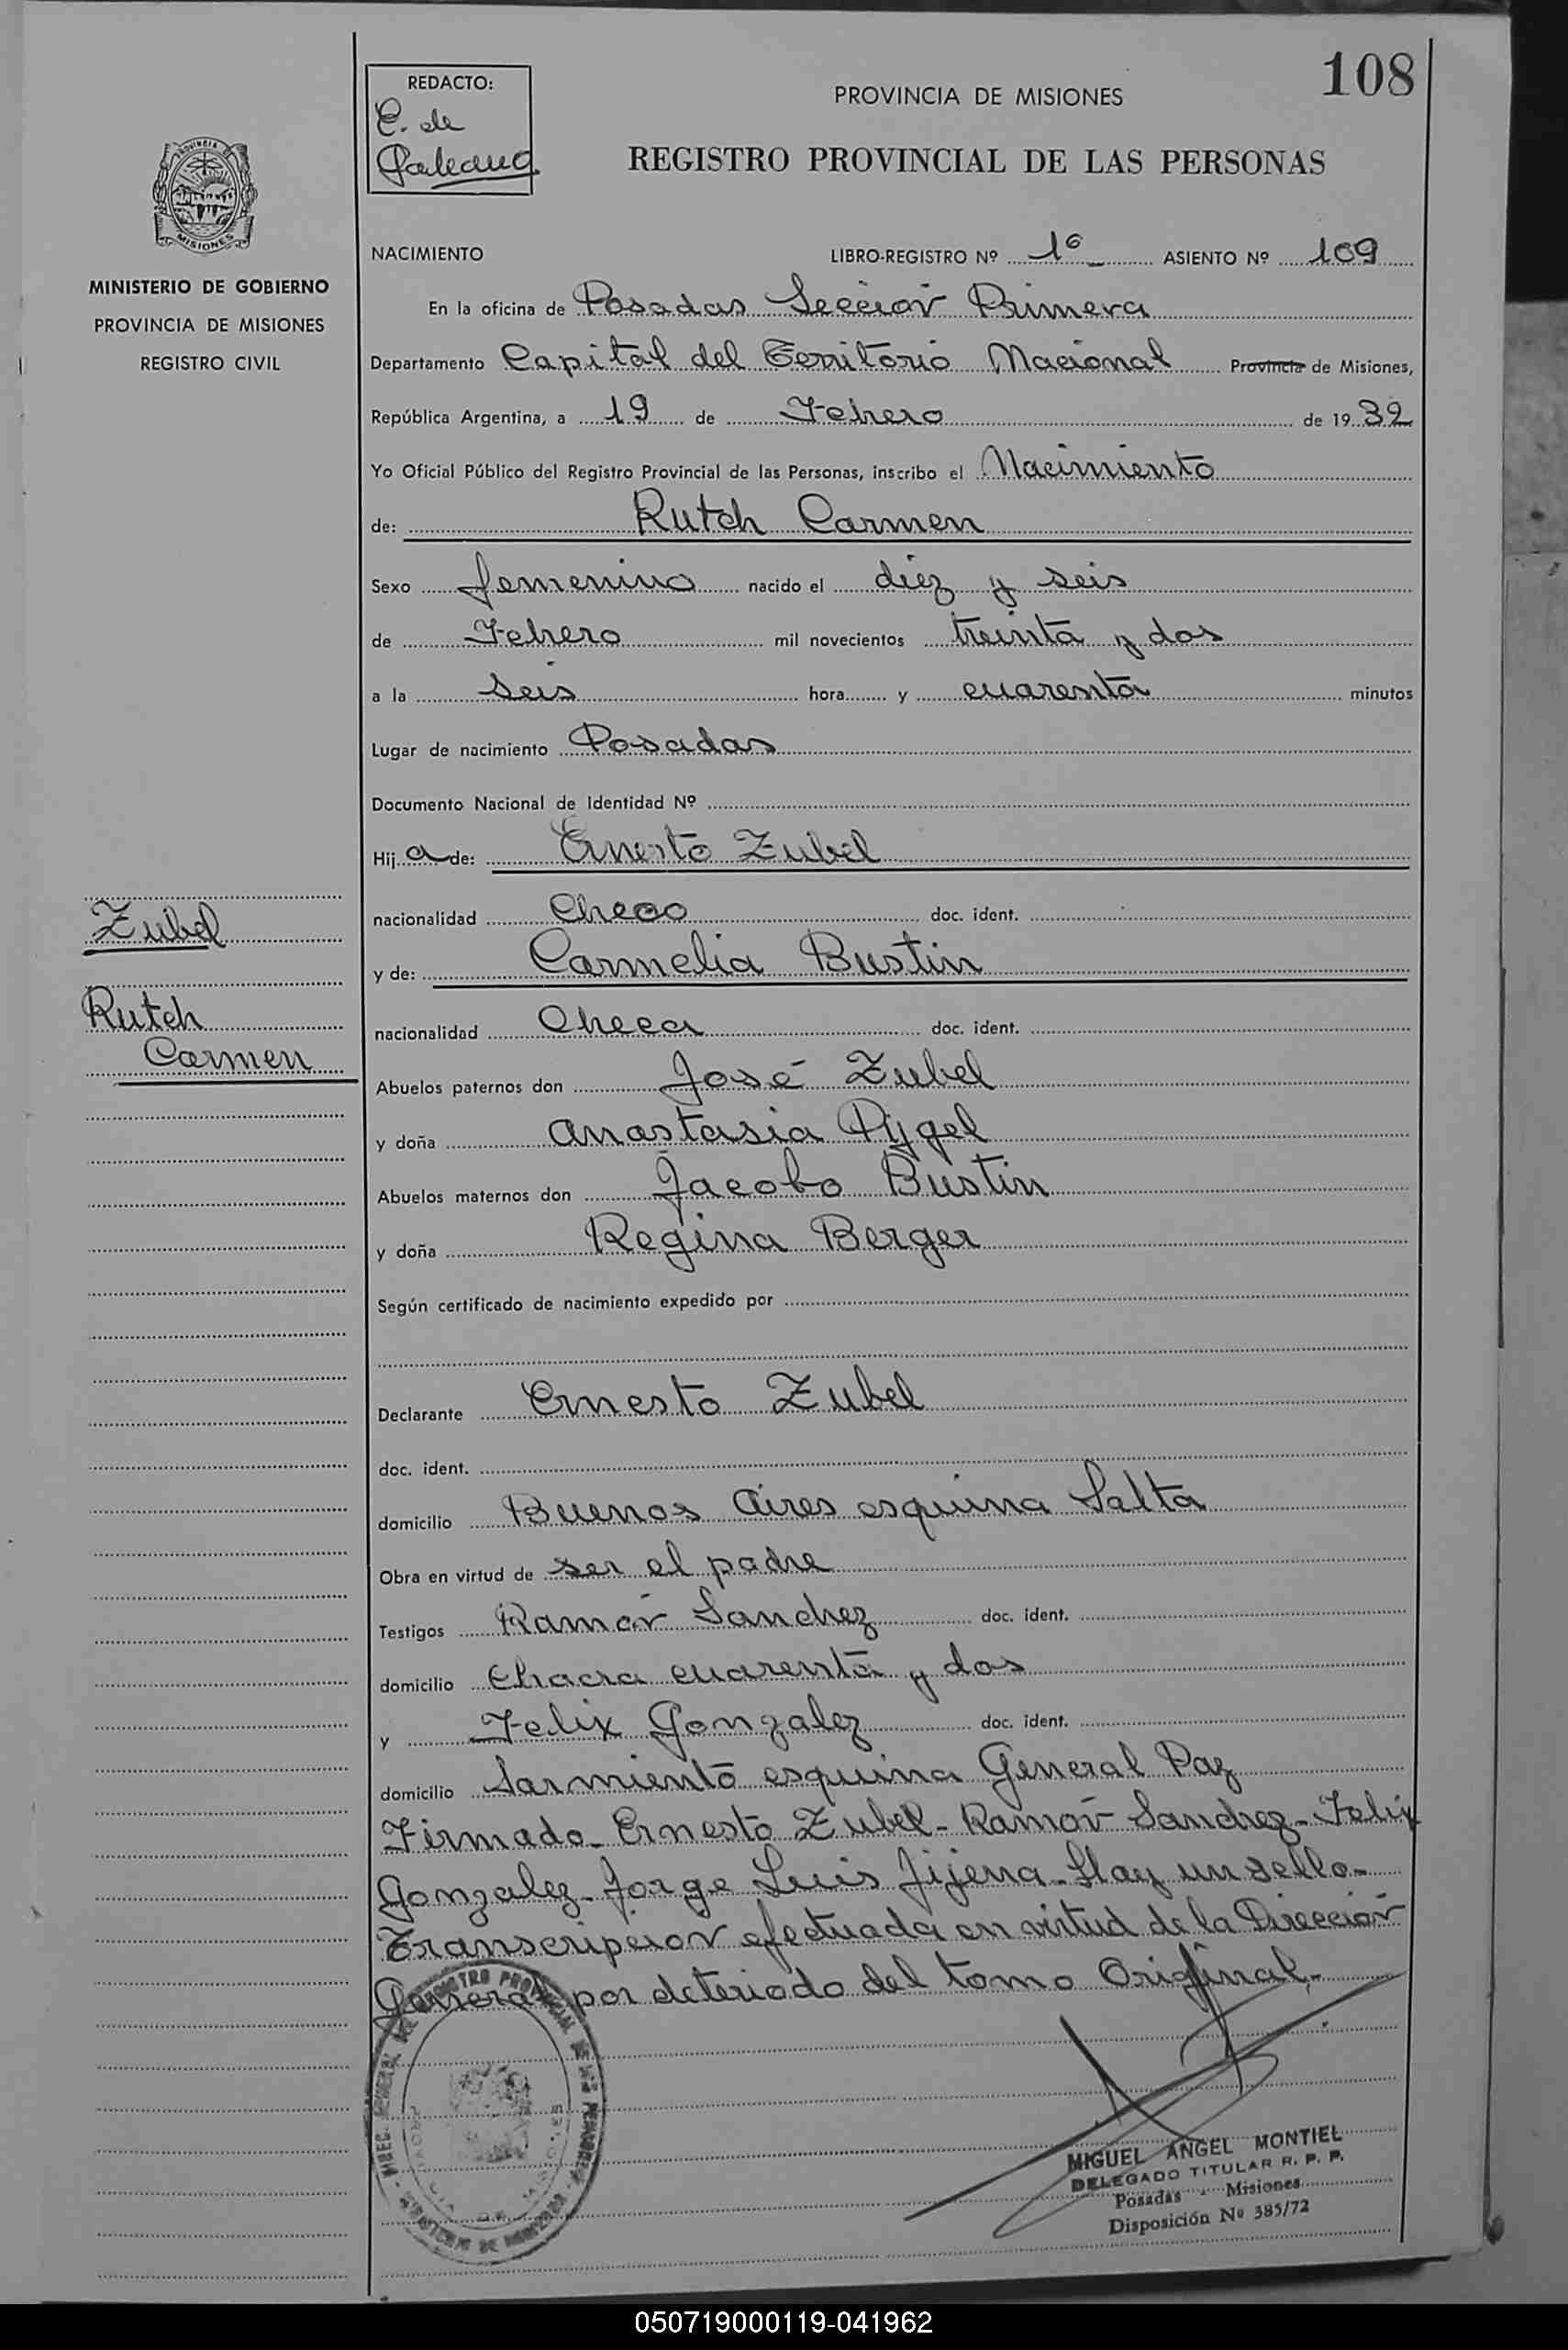 108
REDACTO:
C. de
Galeano
PROVINCIA DE MISIONES
REGISTRO PROVINCIAL DE LAS PERSONAS
PROVINCIA DE
MISIONES
MINISTERIO DE GOBIERNO
PROVINCIA DE MISIONES
REGISTRO CIVIL
NACIMIENTO LIBRO-REGISTRO Nº 1º ASIENTO Nº 109
En la oficina de Posadas Sección Primera
Departamento Capital del Territorio Nacional Provincia de Misiones,
República Argentina, a 19 de Febrero de 1932
Yo Oficial Público del Registro Provincial de las Personas, inscribo el Nacimiento
de: Rutch Carmen
Sexo femenino nacido el diez y seis
de Febrero mil novecientos treinta y dos
a la seis hora y cuarenta minutos
Lugar de nacimiento Posadas
Documento Nacional de Identidad Nº
Hij a de: Ernesto Zubel
nacionalidad Checo doc. ident.
y de: Carmelia Bustin
nacionalidad Checa doc. ident.
Zubel
Rutch
Carmen
Abuelos paternos don José Zubel
y doña Anastasia Pijgel
Abuelos maternos don Jacobo Bustin
y doña Regina Berger
Según certificado de nacimiento expedido por
Declarante Ernesto Zubel
doc. ident.
domicilio Buenos Aires esquina Salta
Obra en virtud de ser el padre
Testigos Ramón Sanchez doc. ident.
domicilio Chacra cuarenta y dos
y Felix Gonzalez doc. ident.
domicilio Sarmiento esquina General Paz
Firmado_ Ernesto Zubel - Ramón Sanchez - Felix
Gonzalez - Jorge Luis Jijena - Hay un sello -
Transcripción efectuada en virtud de la Dirección
General por deteriodo del tomo Original -
MIGUEL ANGEL MONTIEL
DELEGADO TITULAR R. P. P.
Posadas - Misiones
Disposición Nº 385/72
050719000119-041962